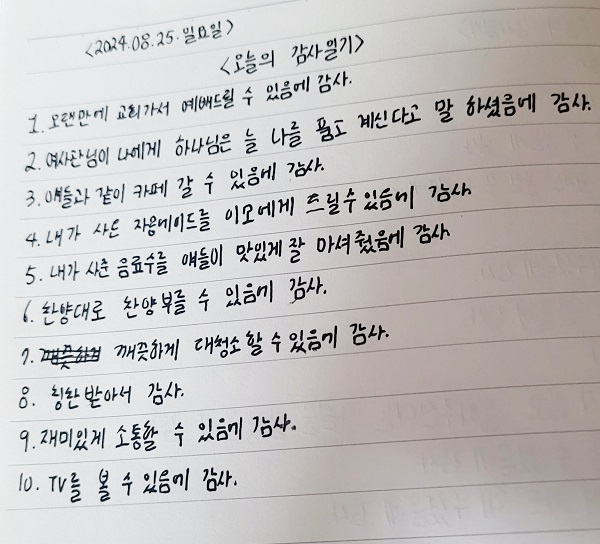 <2024.08.25.일요일>
<오늘의 감사일기>
1. 오랜만에 교회가서 예배드릴 수 있음에 감사.
2. 여사관님이 나에게 하나님은 늘 나를 품고 계신다고 말 하셨음에 감사.
3. 얘들과 같이 카페 갈 수 있음에 감사.
4. 내가 사온 자몽에이드를 이모에게 드릴수있음에 감사.
5. 내가 사준 음료수를 얘들이 맛있게 잘 마셔줬음에 감사.
6. 찬양대로 찬양 부를 수 있음에 감사.
7. 깨끗하게 대청소할 수 있음에 감사.
8. 칭찬받아서 감사.
9. 재미있게 소통할 수 있음에 감사.
10. TV를 볼 수 있음에 감사.